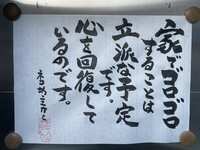 家でゴロゴロ
することは
立派な予定
です。
心を回復して
いるのです。